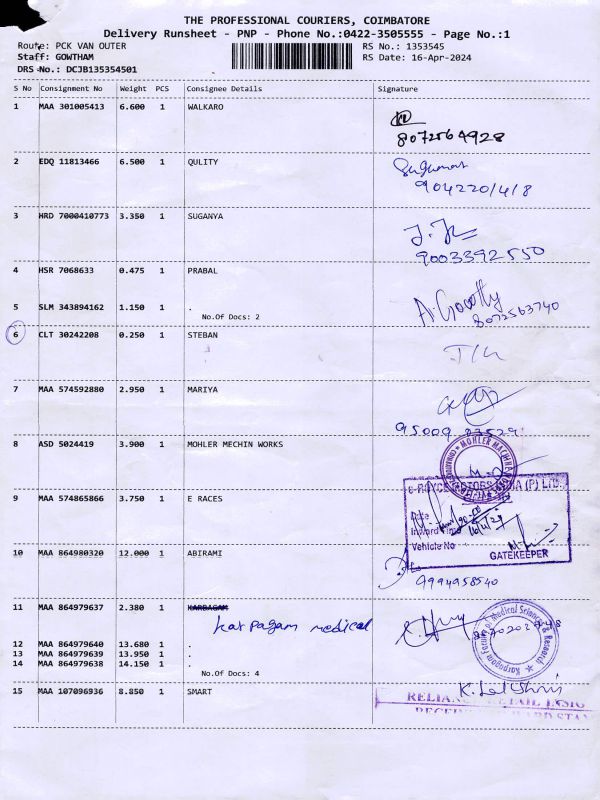 THE PROFESSIONAL COURIERS, COIMBATORE
Delivery Runsheet - PNP - Phone No.:0422-3505555 - Page No.:1
Route: PCK VAN OUTER RS No.: 1353545
Staff: GOWTHAM RS Date: 16-Apr-2024
DRS No.: DCJB135354501
S No Consignment No Weight PCS Consignee Details Signature
1 MAA 301005413 6.600 1 WALKARO
8072564928
2 EDQ 11813466 6.500 1 QULITY
Sugumar
904220/4/8
3 HRD 7000410773 3.350 1 SUGANYA
9003392550
4 HSR 7068633 0.475 1 PRABAL
5 SLM 343894162 1.150 1 .
No.Of Docs: 2
8072563740
6 CLT 30242208 0.250 1 STEBAN
7 MAA 574592880 2.950 1 MARIYA
95009 83529
8 ASD 5024419 3.900 1 MOHLER MECHIN WORKS
9 MAA 574865866 3.750 1 E RACES
Date
Vehicle No
GATEKEEPER
10 MAA 864980320 12.000 1 ABIRAMI
9994958540
11 MAA 864979637 2.380 1 KARBAGAM
karpagam medical
12 MAA 864979640 13.680 1 .
13 MAA 864979639 13.950 1 .
14 MAA 864979638 14.150 1 .
No.Of Docs: 4
15 MAA 107096936 8.850 1 SMART